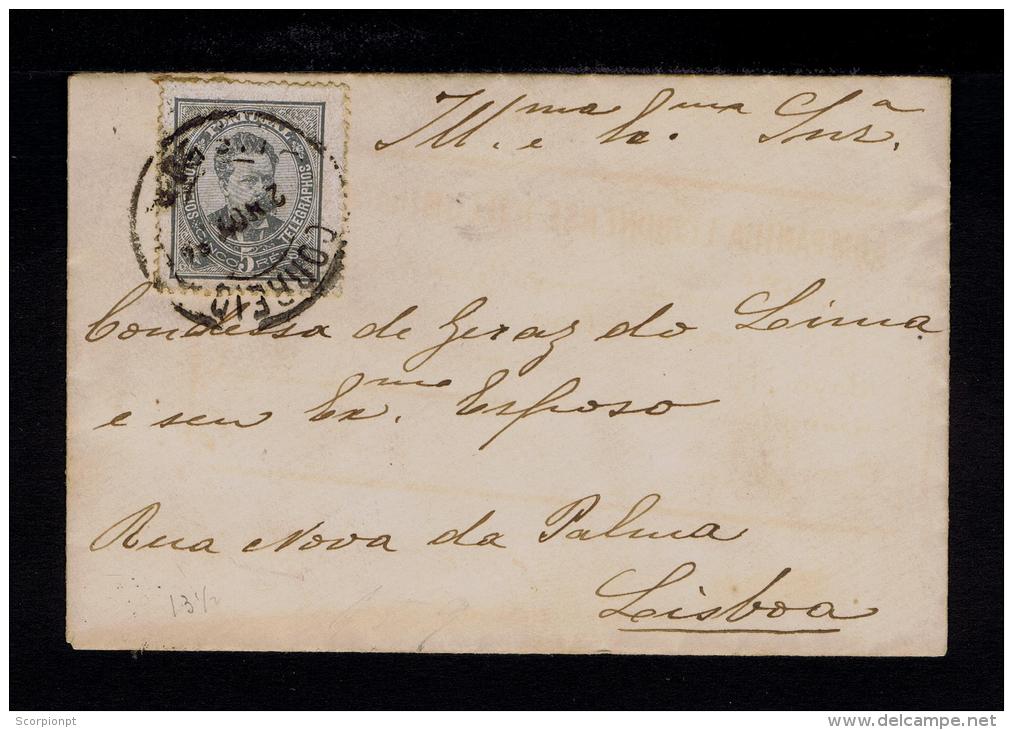 PORTUGAL
CORREIO
TELEGRAPHOS
CINCO REIS
5
Ill.ma e Ex.ma Snr.a
Condessa de Geraz do Lima
e seu Ex.mo Esposo
Rua Nova da Palma
Lisboa
13 1/2
Scorpionpt
www.delcampe.net